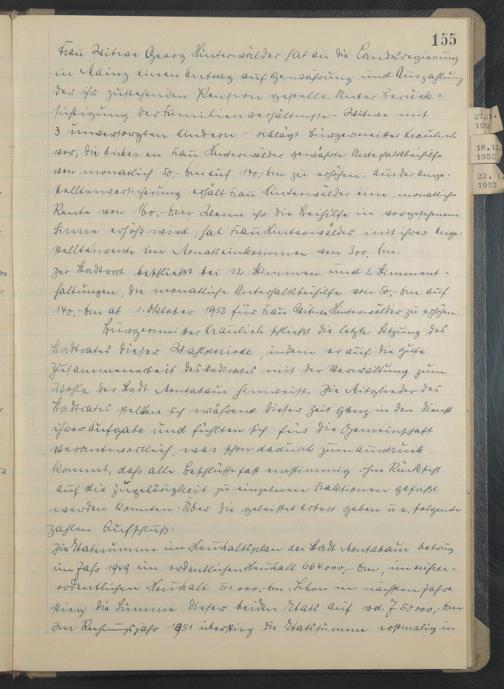 155
Frau Witwe Georg Hinterwälder hat an die Landesregierung
in Mainz einen Antrag auf Gewährung und Auszahlung
der ihr zustehenden Pension gestellt. Unter Berück-
sichtigung der Familienverhältnisse - Witwe mit
3 unversorgten Kindern - schlägt Bürgermeister Kraulich
vor, die bisher an Frau Hinterwälder gewährte Unterhaltsbeihilfe
von monatlich 50,- DM auf 140,- DM zu erhöhen. Aus der Ange-
stelltenversicherung erhält Frau Hinterwälder eine monatliche
Rente von 160,- DM. Wenn ihr die Beihilfe in vorgesehenem
Sinne erhöht wird, hat Frau Hinterwälder mit ihrer Ange-
stelltenrente im Monatseinkommen von 300,- DM.
Der Stadtrat beschließt bei 12 Stimmen und 2 Stimment-
haltungen, die monatliche Unterhaltsbeihilfe von 50,- DM auf
140,- DM ab 1. Oktober 1952 für Frau Witwe Hinterwälder zu erhöhen.
Bürgermeister Kraulich schließt die letzte Sitzung des
Stadtrates dieser Wahlperiode, indem er auf die gute
Zusammenarbeit des Stadtrates mit der Verwaltung zum
Wohle der Stadt Montabaur hinweist. Die Mitglieder des
Stadtrates stellten sich während dieser Zeit ganz in den Dienst
ihrer Aufgabe und fühlten sich für die Gemeinschaft
verantwortlich, was schon dadurch zum Ausdruck
kommt, daß alle Beschlüsse fast einstimmig ohne Rücksicht
auf die Zugehörigkeit zu einzelnen Fraktionen gefaßt
werden konnten. Über die geleistete Arbeit geben u. a. folgende
Zahlen Aufschluß:
Die Etatsumme im Haushaltsplan der Stadt Montabaur betrug
im Jahr 1949 im ordentlichen Haushalt 664.000,- DM, im außer-
ordentlichen Haushalt 51.000,- DM. Schon im nächsten Jahre
stieg die Summe dieser beiden Etats auf rd. 750000,- DM
Im Rechnungsjahr 1951 überstieg die Etatsumme erstmalig in
18.12.
1952
22. 1.
1953